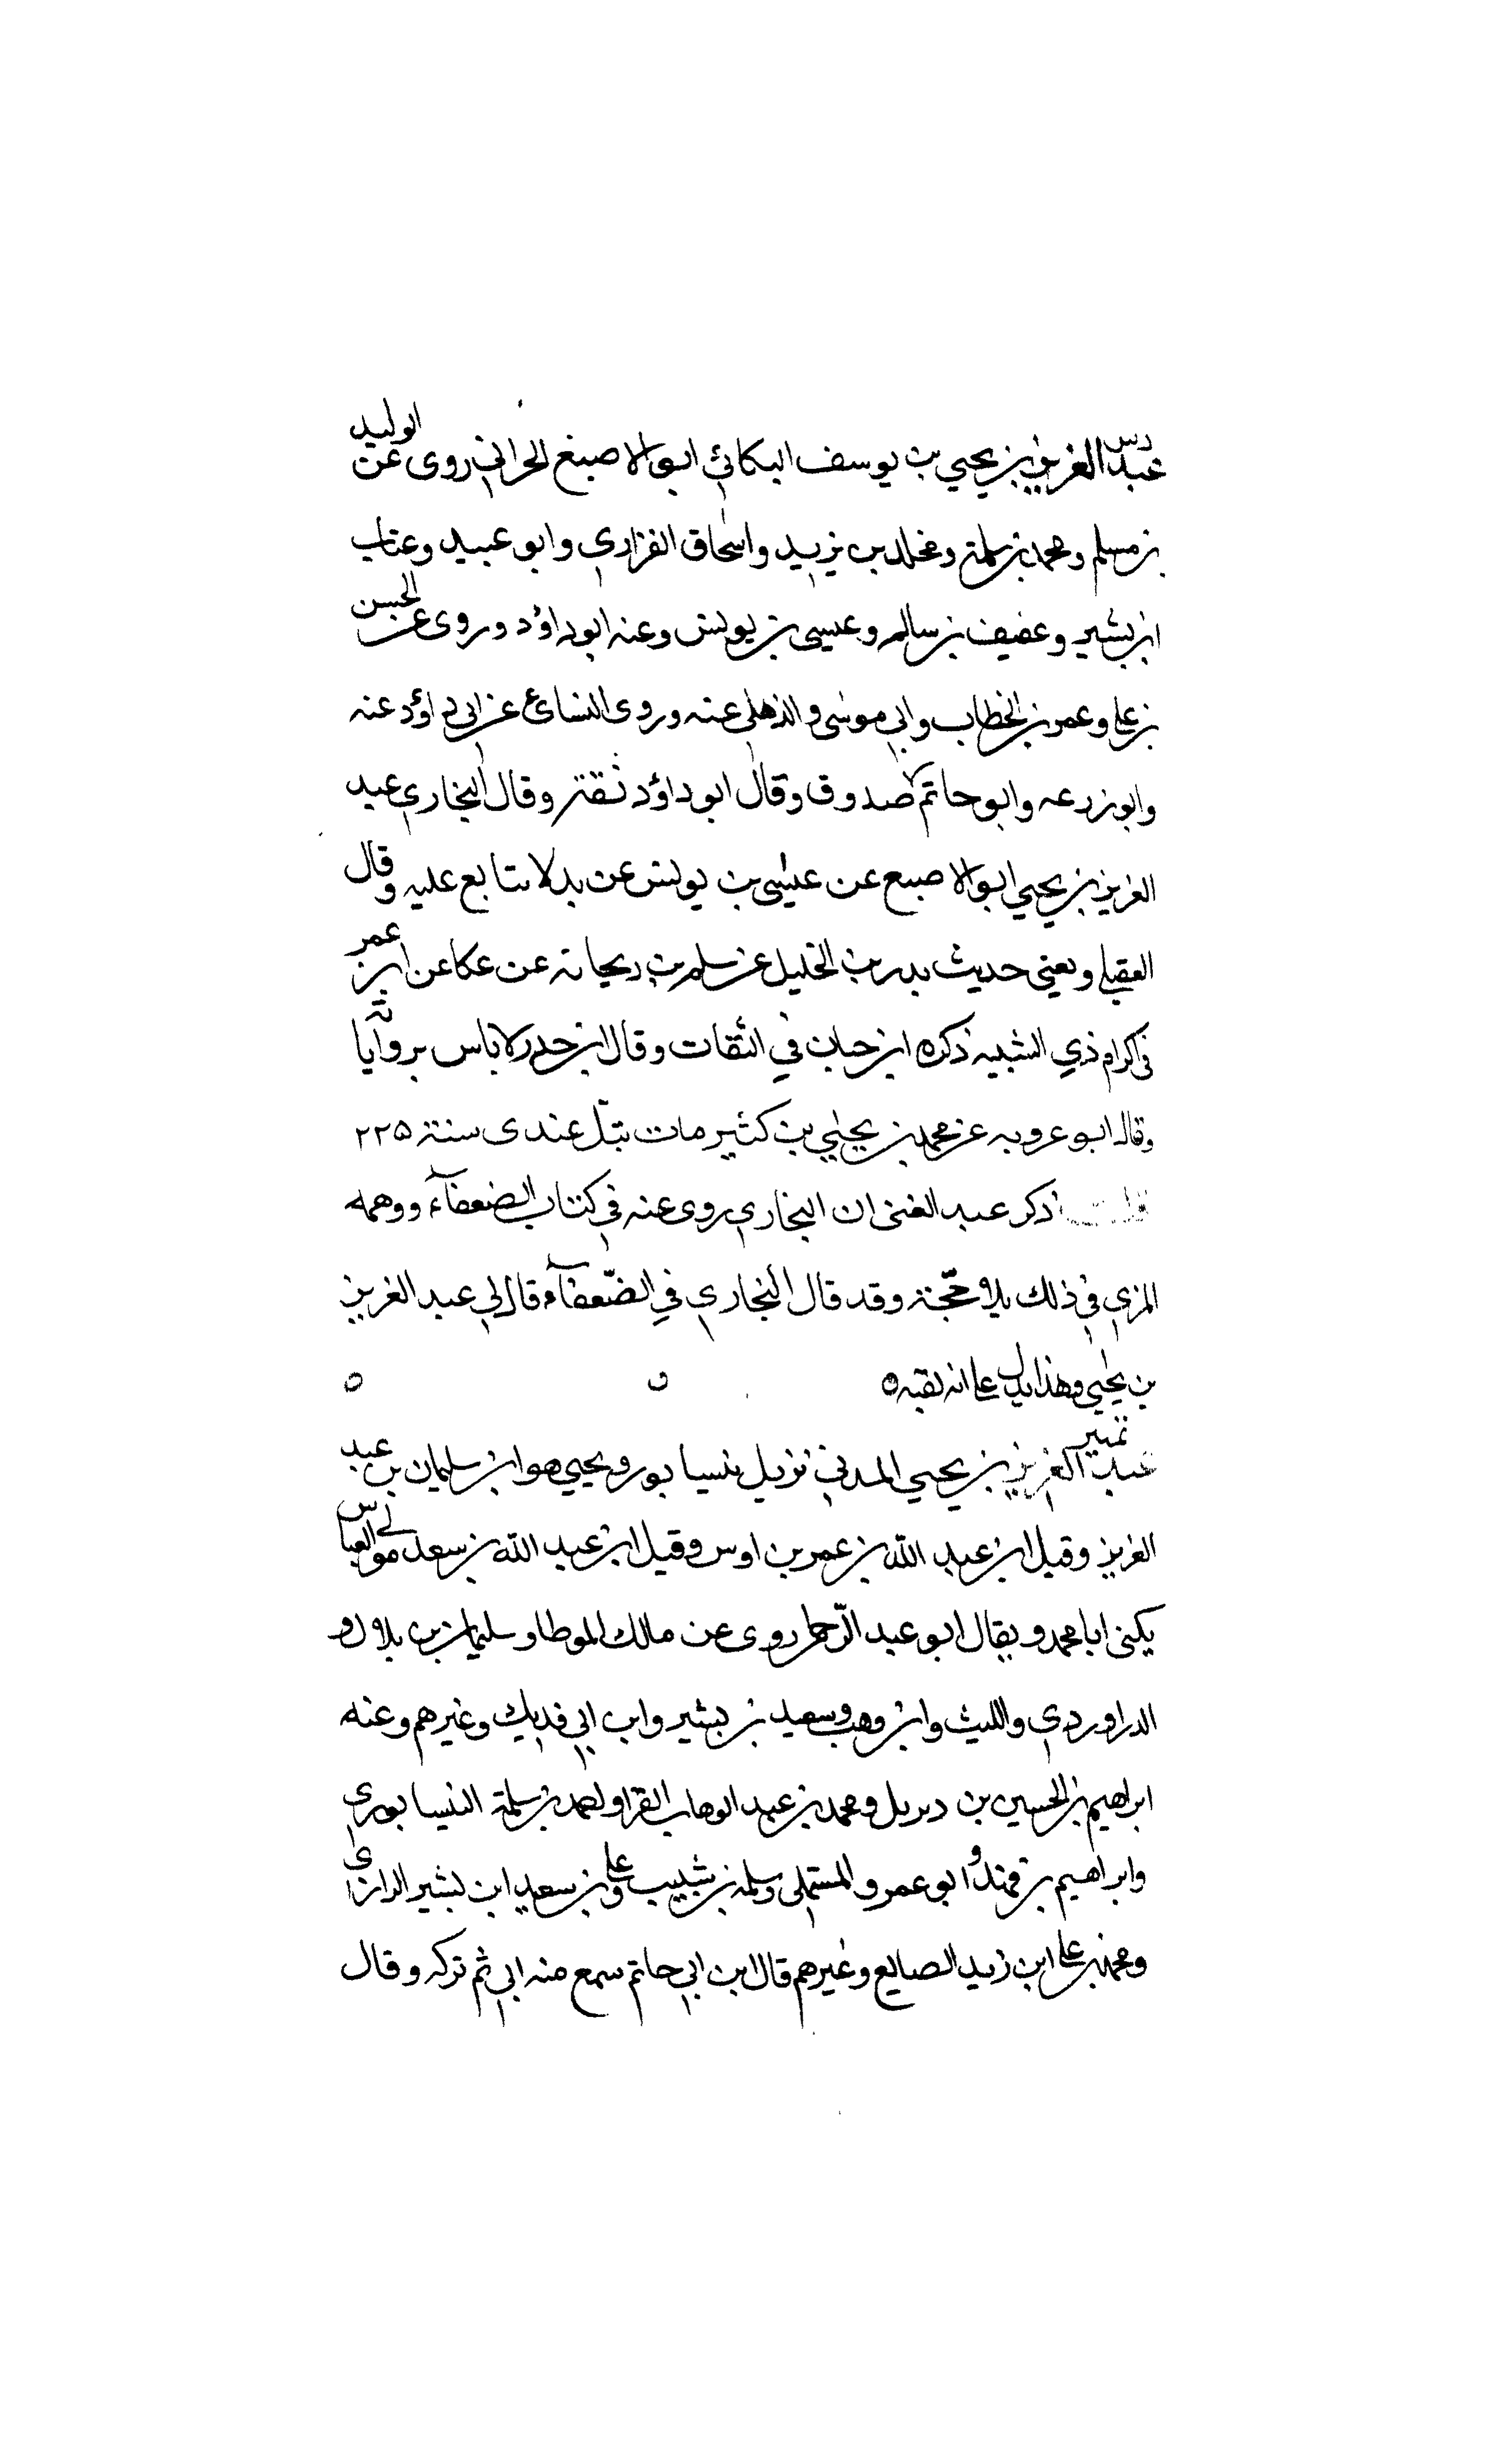 د س
عبد العزيز بن يحيي بن يوسف البكائي ابو الاصبغ الحراني روى عن الوليد
بن مسلم ومحمد بن سلمة ومخلد بن يزيد واسحاق الفزاري وابو عبيد وعتاب
ابن بشير وعفيف بن سالم وعيسى بن يونس وعنه ابو داؤد وروى عن الحسن
بن علي وعمر بن الخطاب وابي موسى والذهلي عنه وروى النسائ عن ابي داؤد عنه
وابو زرعه وابو حاتم صدوق وقال ابو داؤد ثقة وقال البخاري عبد
العزيز بن يحيي ابو الاصبع عن عيسى بن يونس عن بدر لا يتابع عليه وقال
العقيلي ويعني حديث بدر بن الخليل عن سلم بن ريحانه عن عكا عن ابن عمر
في اكرام ذي الشيبه ذكره ابن حبان في الثقات وقال ابن عدي لا باس برواياته
وقال ابو عروبه عن محمد بن يحيي بن كثير مات بتل عندى سنة ٢٢٥
قلت ذكر عبد الغنى ان البخاري روى عنه في كتاب الضعفآء ووهمه
المزي في ذلك بلا حجّة وقد قال البخاري في الضّعفآء قال لي عبد العزيز
بن يحيي وهذا يدل على انه لقيه ه ن ه
تمييز
عبد العزيز بن يحيي المدني نزيل نيسابور ويحيي هو ابن سليمان بن عبد
العزيز وقيل ابن عبد الله بن عمر بن اوس وقيل ابن عبد الله بن سعد مولى العباس
يكنى ابا محمد ويقال ابو عبد الرّحمن روى عن مالك الموطا وسليمان بن بلال و
الدراوردي والليث وابن وهب وسعيد بن بشير وابن ابي فديك وغيرهم وعنه
ابراهيم بن الحسين بن ديزيل ومحمد بن عبد الوهاب الفرا واحمد بن سلمة النيسابورى
وابراهيم بن فهد وابو عمرو المستملى وسلمه بن شبيب وعلي بن سعيد ابن بشير الرازى
ومحمد بن علي ابن زيد الصايع وغيرهم قال ابن ابي حاتم سمع منه ابي ثم تركه وقال